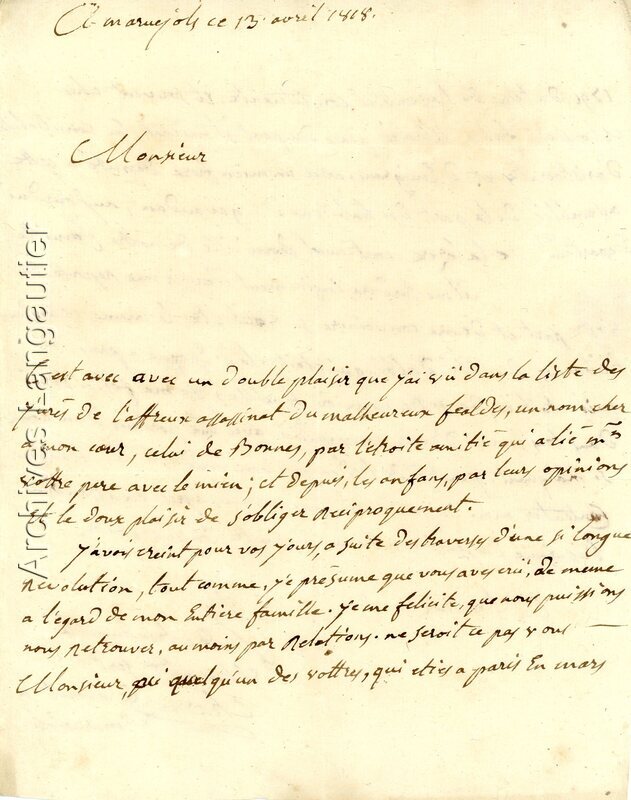 A marvejols ce 13. avril 1818.
Monsieur
C'est avec avec un double plaisir que j'ai vü dans la liste des
jurés de l'affreux assassinat du malheureux fealdes, un nom cher
a mon cœur, celui de Bonnes, par l'étroite amitié qui a lié mr
vottre pere avec le mien; et depuis, les anfans, par leurs opinions
et le doux plaisir de s'obliger Réciproquement.
J'avois creint pour vos jours, a suite des traverses d'une si longue
Revolution, tout comme, je présume que vous aves crü, de meme
a l'égard de mon Entiere famille. je me felicite, que nous puissions
nous Retrouver, au moins par Relations. ne seroit ce pas vous —
Monsieur, quelqu'un des vottres, qui eties a paris En mars
Archives Langautier